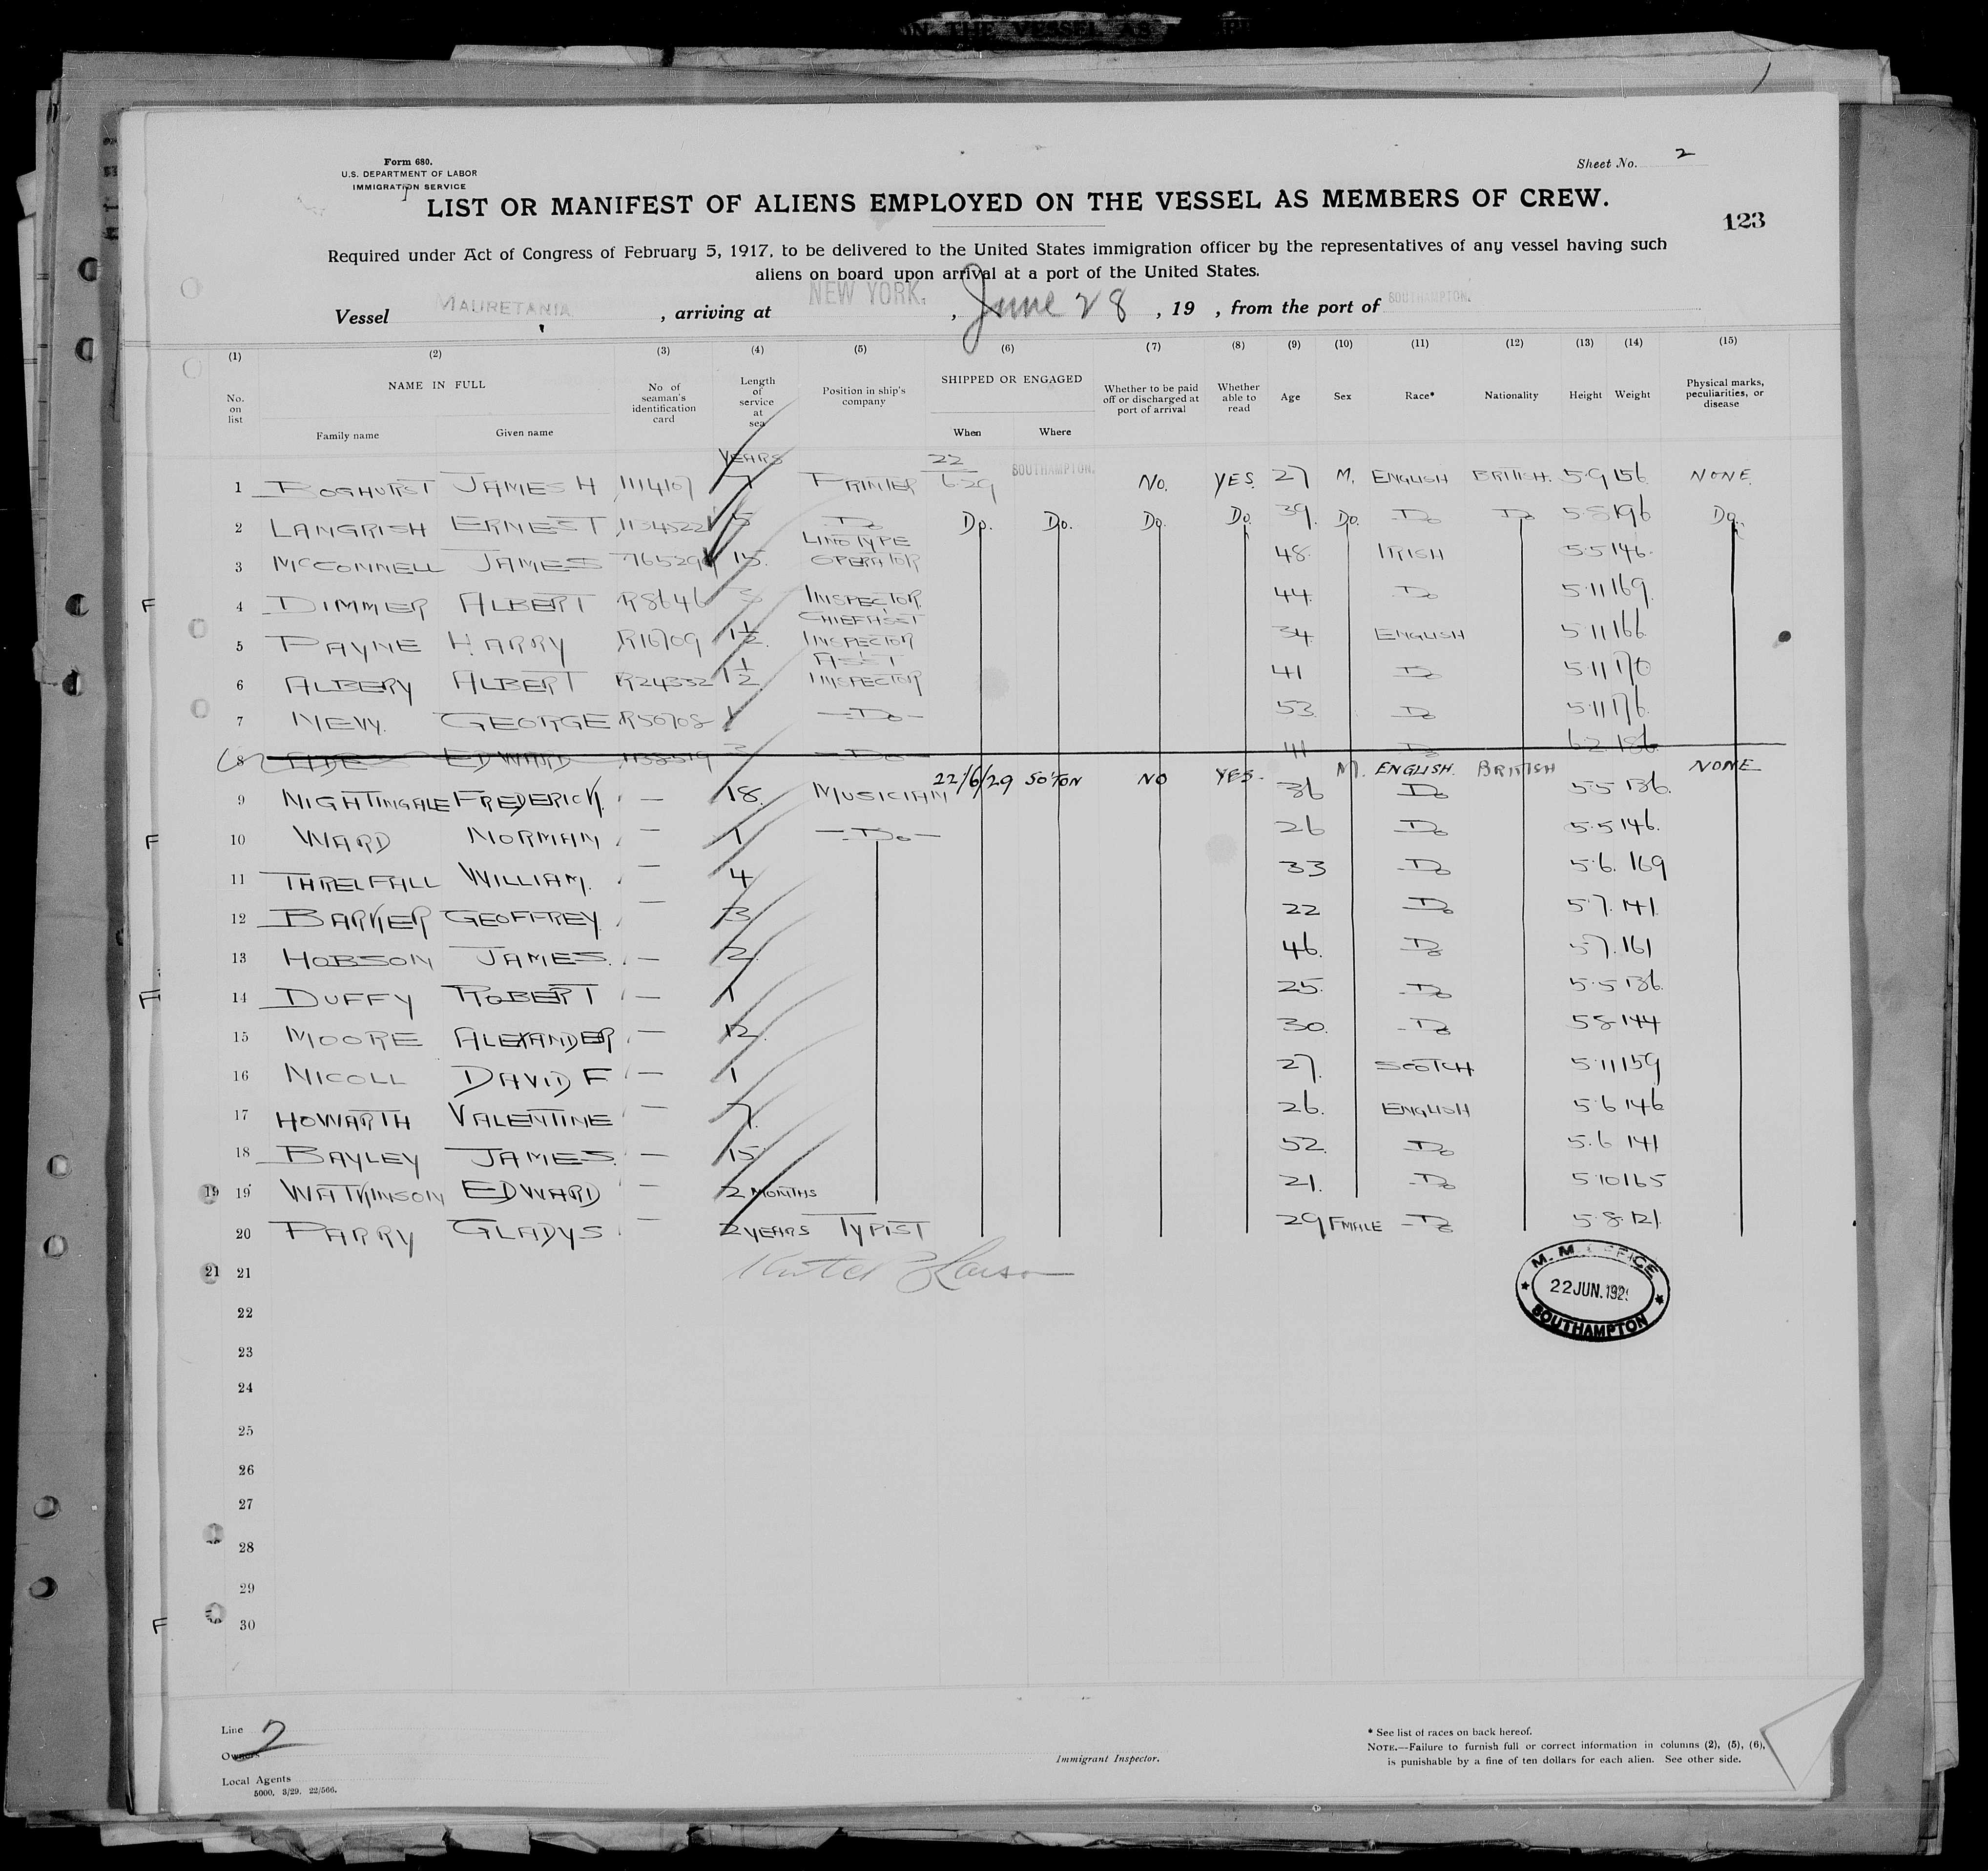 Form 680.
U.S. DEPARTMENT OF LABOR
IMMIGRATION SERVICE
Sheet No. 2
LIST OR MANIFEST OF ALIENS EMPLOYED ON THE VESSEL AS MEMBERS OF CREW.
123
Required under Act of Congress of February 5, 1917, to be delivered to the United States immigration officer by the representatives of any vessel having such
aliens on board upon arrival at a port of the United States.
Vessel MAURETANIA, arriving at NEW YORK, June 28, 19 , from the port of SOUTHAMPTON.
(1) (2) (3) (4) (5) (6) (7) (8) (9) (10) (11) (12) (13) (14) (15)
No. on list NAME IN FULL Family name Given name No of seaman's identification card Length of service at sea Position in ship's company SHIPPED OR ENGAGED When Where Whether to be paid off or discharged at port of arrival Whether able to read Age Sex Race* Nationality Height Weight Physical marks, peculiarities, or disease
YEARS
1 BOGHURST JAMES H 1114167 7 PRINTER 22 6.29 SOUTHAMPTON. No. YES. 27 M. ENGLISH BRITISH. 5·9 156 NONE.
2 LANGRISH ERNEST 1134522 5 Do Do. Do. Do. Do. 39. Do. Do Do 5·8 196 Do.
3 McCONNELL JAMES 15. LINOTYPE OPERATOR 48. IRISH 5·5 146.
F 4 DIMMER ALBERT R8646 3 INSPECTOR. 44. Do 5·11 169.
5 PAYNE HARRY R16709 1½. CHIEF ASST INSPECTOR 34 ENGLISH 5·11 166.
6 ALBERY ALBERT R24332 1½ ASST INSPECTOR 41 Do 5·11 170
7 NEW. GEORGE R50708 1 —Do— 53 Do 5·11 176.
8 EDWARD 3 —Do— 41 Do 6·2 186.
9 NIGHTINGALE FREDERICK. — 18. MUSICIAN 22/6/29 SO'TON NO YES. 36 M. ENGLISH. Do BRITISH 5·5 136. NONE
F 10 WARD NORMAN — 1 —Do— 26 Do 5·5 146.
11 THRELFALL WILLIAM. — 4 33 Do 5·6. 169
12 BARKER GEOFFREY. — 3 22 Do 5·7. 141.
13 HOBSON JAMES. — 2 46. Do 5·7. 161
F 14 DUFFY ROBERT — 1 25. Do 5·5 136.
15 MOORE ALEXANDER — 12. 30. Do 5·8 144
16 NICOLL DAVID F — 1 27. SCOTCH 5·11 159
17 HOWARTH VALENTINE — 7. 26. ENGLISH 5·6 146
18 BAYLEY JAMES. — 15 52. Do 5.6 141
19 19 WATKINSON EDWARD — 2 MONTHS 21. Do 5·10 165
20 PARRY GLADYS — 2 YEARS TYPIST 29 FMALE Do 5·8·121.
21 21
22
23
24
25
26
27
28
29
F 30
22 JUN. 192
SOUTHAMPTON
Line 2
Owners
Local Agents
5000. 3/29. 22/566.
Immigrant Inspector.
* See list of races on back hereof.
NOTE.—Failure to furnish full or correct information in columns (2), (5), (6),
is punishable by a fine of ten dollars for each alien. See other side.